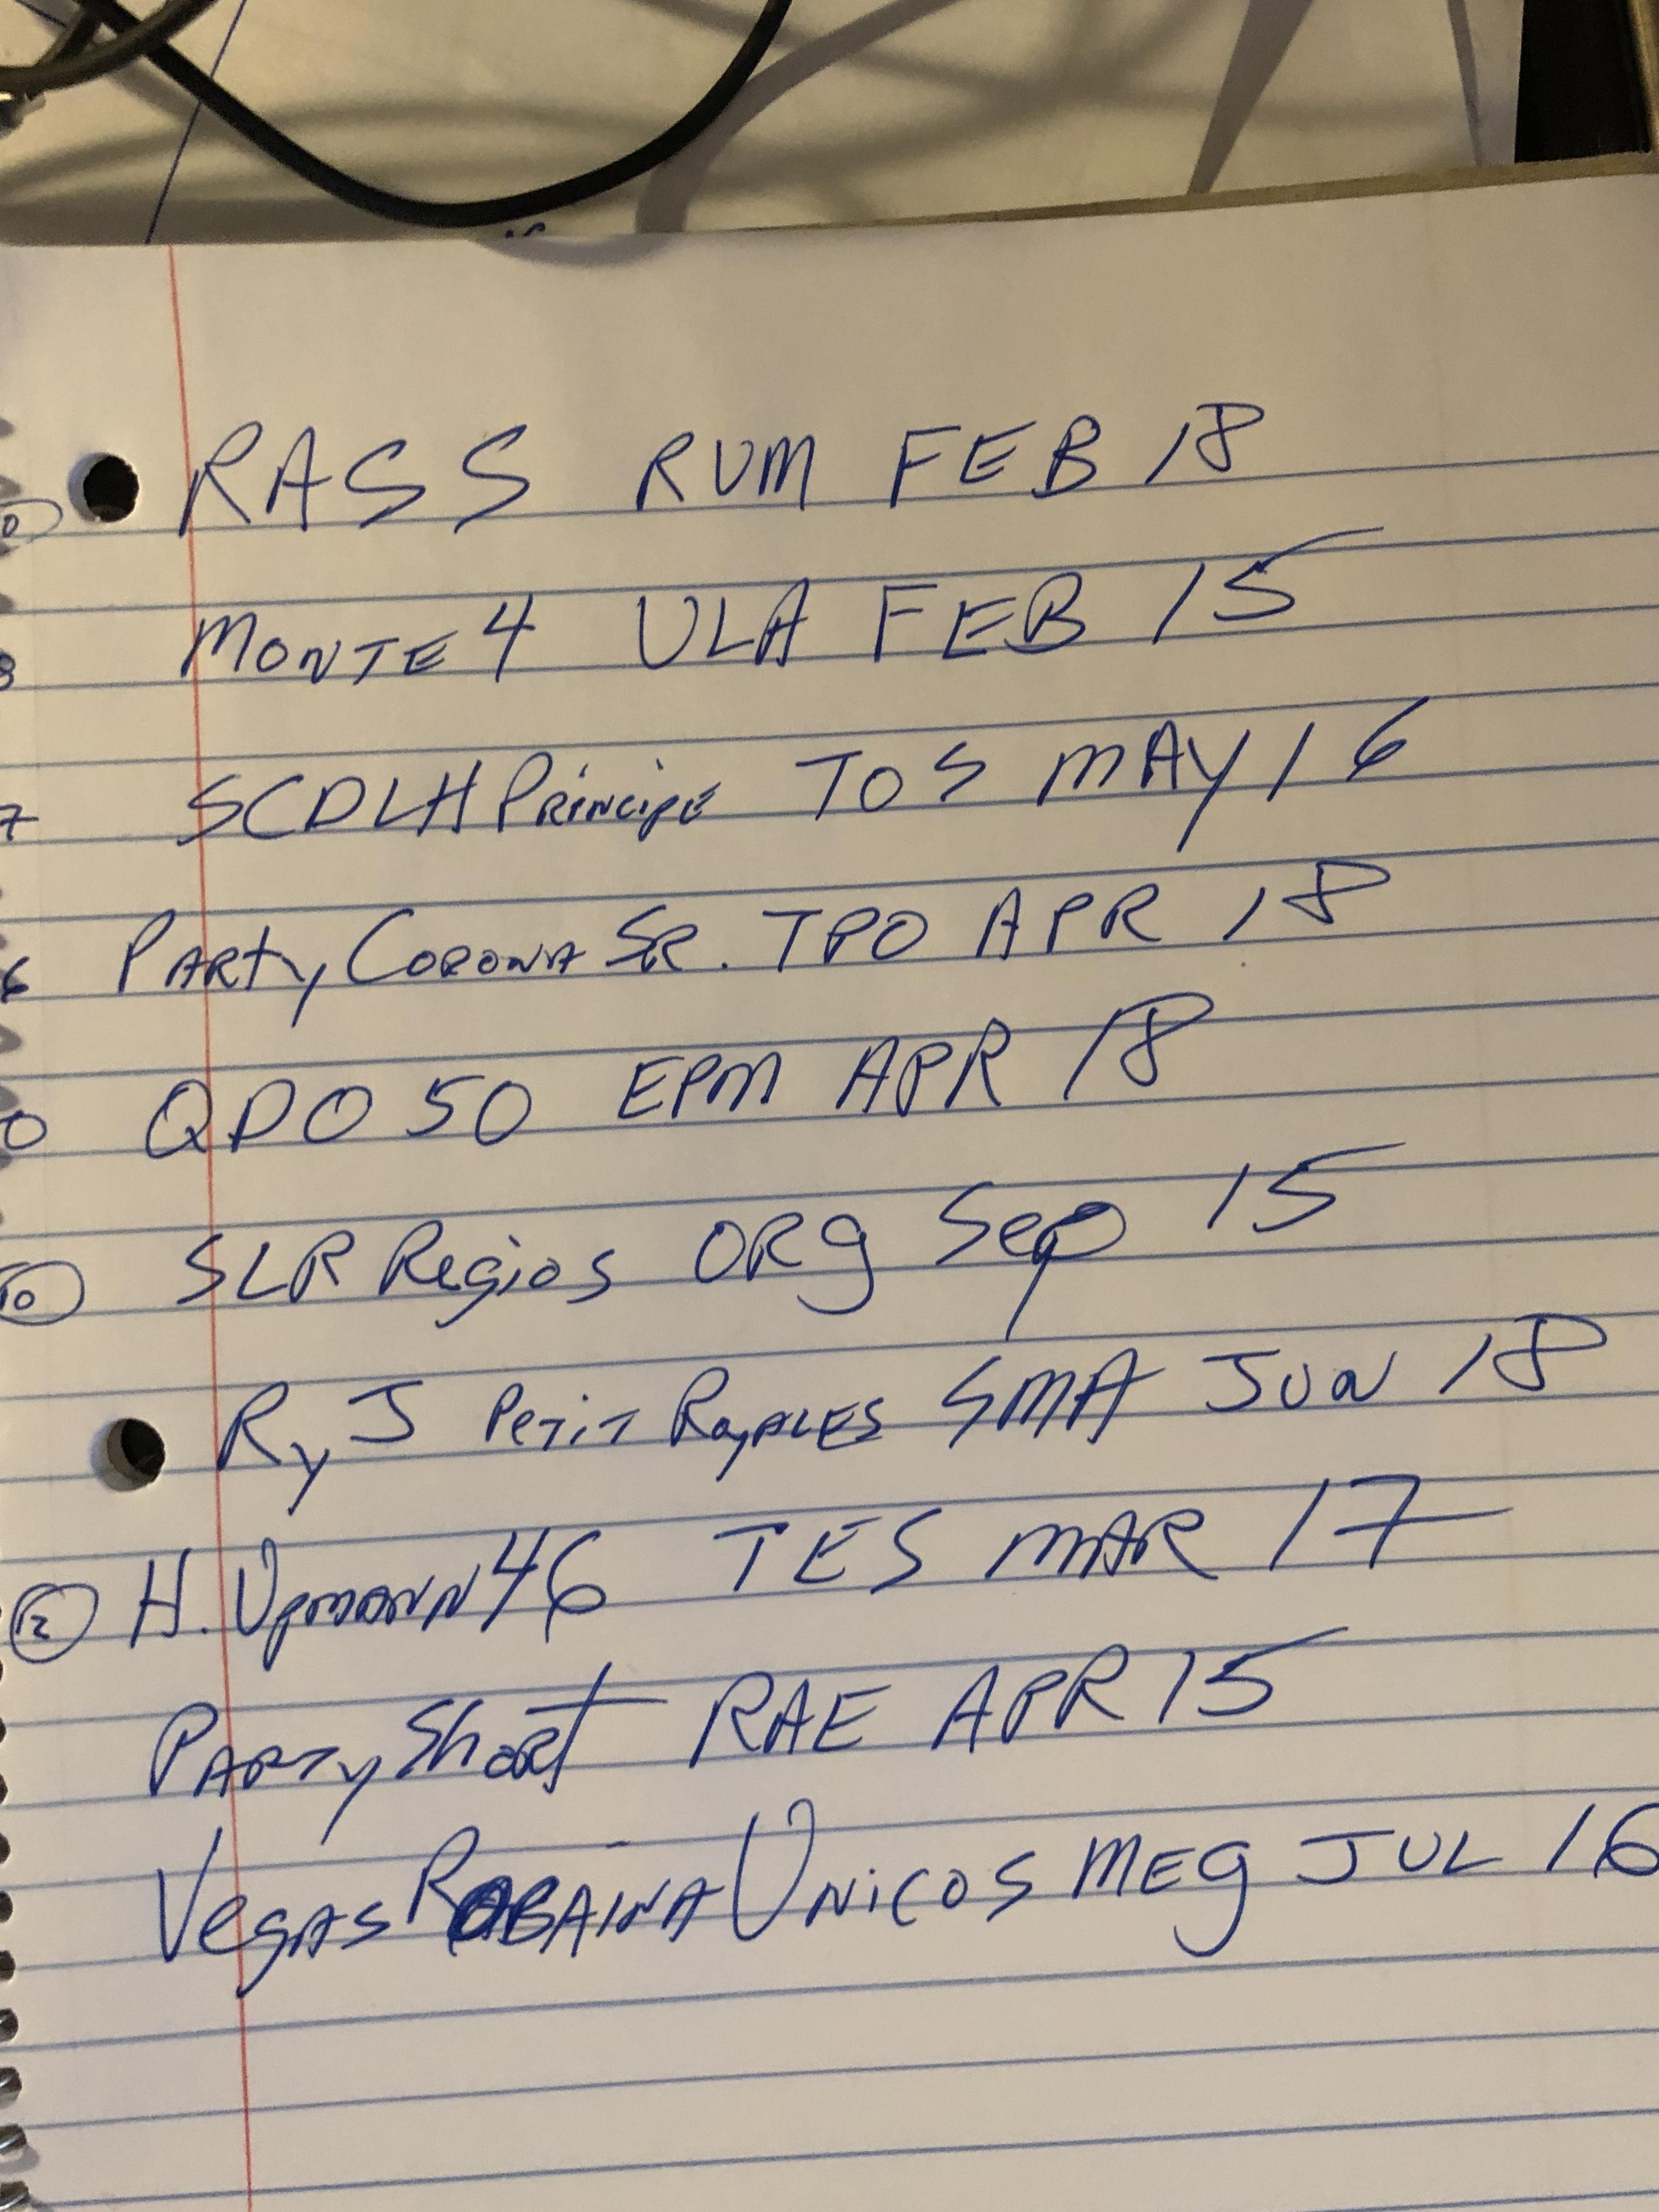 RASS RUM FEB 18
MONTE 4 ULA FEB 15
8
SCDLH PRiNCiPE TOS MAY 16
7
PARty CORONA SR. TPO APR 18
6
QDO 50 EPM APR 18
0
SLR Regios ORg Sep 15
10
RyJ PETiT RoyALES SMA JUN 18
12 H. UpmANN 46 TES MAR 17
PARTy ShORT RAE APR 15
VegAS ROBAINA UNiCOS MEg JUL 16